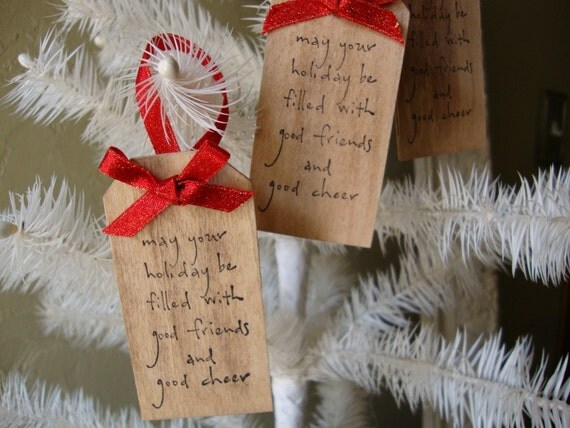 may your
holiday be
filled with
good friends
and
good cheer
may your
holiday be
filled with
good friends
and
good cheer
holiday be
filled with
good friends
and
good cheer